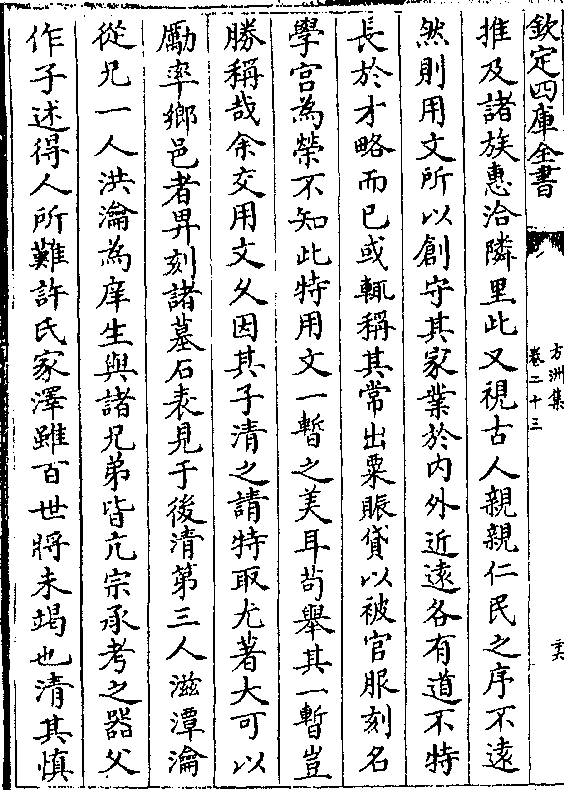 欽定四庫全書
方洲集
卷二十三
推及諸族惠洽隣里此又視古人親親仁民之序不逺
然則用文所以創守其家業於内外近逺各有道不特
長於才略而已或輒稱其常出粟賑貸以被官服刻名
學宫為榮不知此特用文一暫之美耳茍舉其一暫豈
勝稱哉余交用文乆因其子清之請特取尤著大可以
勵率鄉邑者畀刻諸墓石表見于後清第三人滋潭瀹
從兄一人洪瀹為庠生與諸兄弟皆亢宗承考之器父
作子述得人所難許氏家澤雖百世將未竭也清其慎